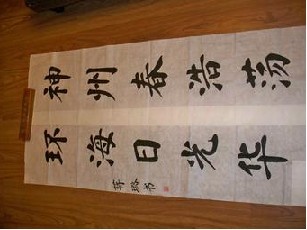 神州春浩荡
环海日光华